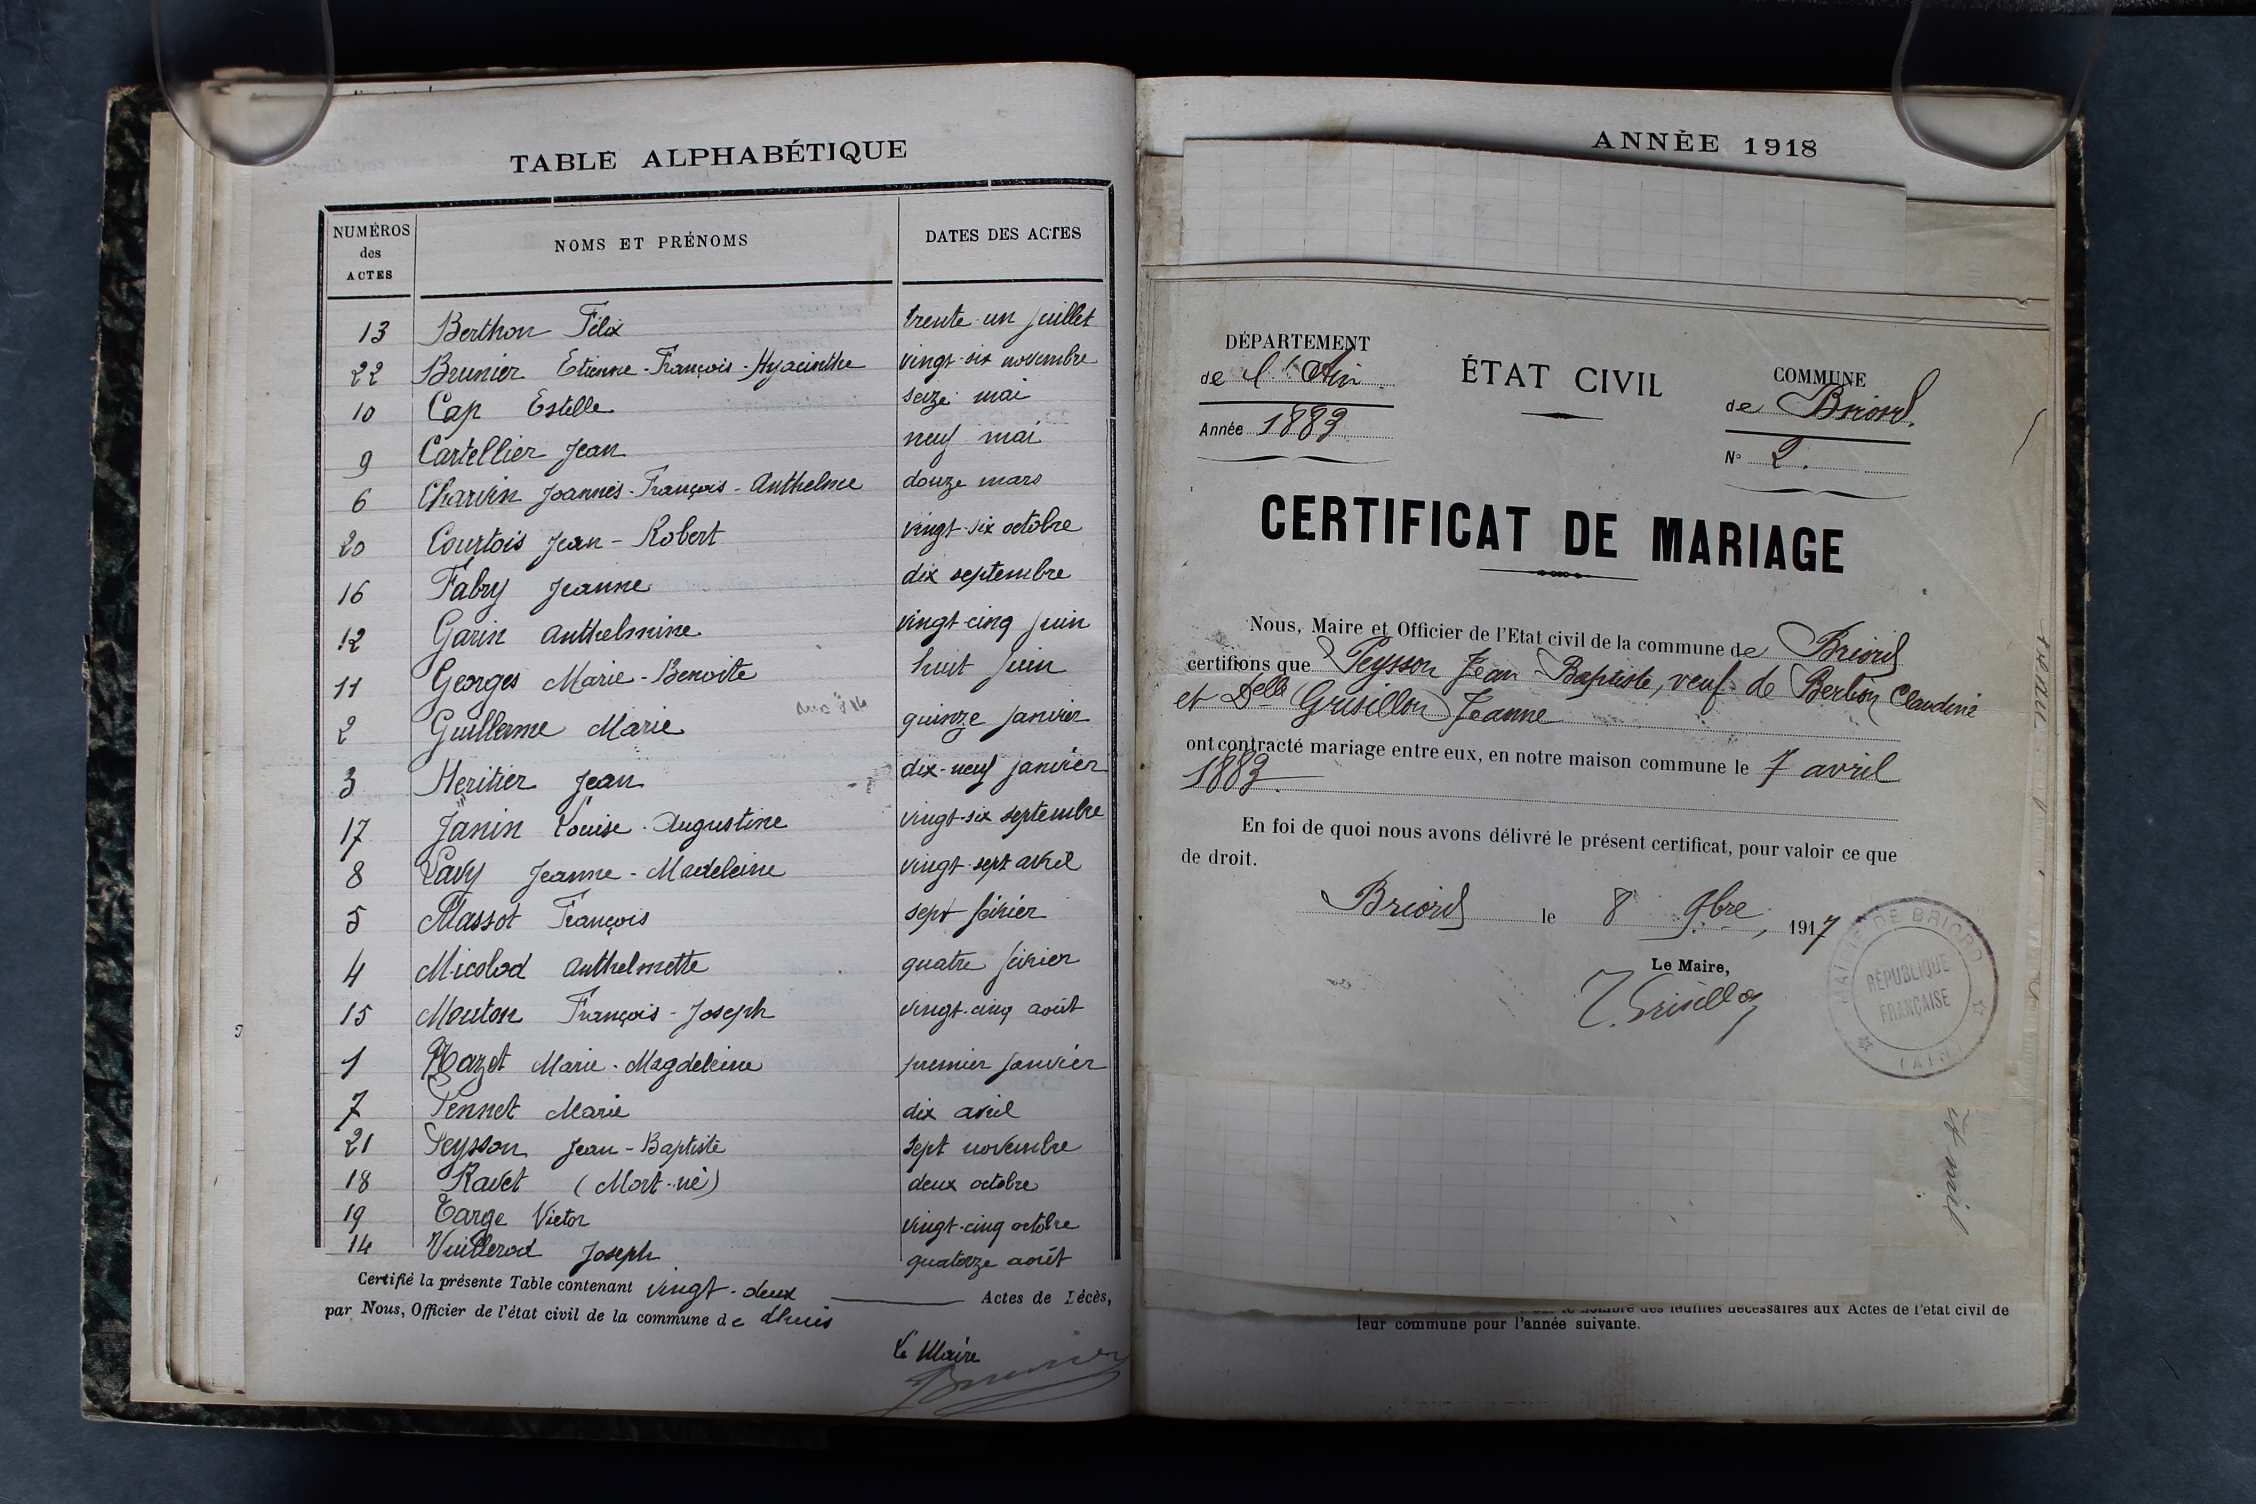 TABLE ALPHABÉTIQUE
NUMÉROS des ACTES NOMS ET PRÉNOMS DATES DES ACTES
13 Berthon Félix trente un juillet
22 Brunier Etienne-François-Hyacinthe vingt-six novembre
10 Cap Estelle seize mai
9 Cartellier Jean neuf mai
6 Charvin Joannès-François-Anthelme douze mars
20 Courtois Jean-Robert vingt-six octobre
16 Fabry Jeanne dix septembre
12 Garin Anthelmine vingt-cinq juin
11 Georges Marie-Benoite huit juin
2 Guillerme Marie quinze janvier
3 Heritier Jean dix-neuf janvier
17 Janin Louise-Augustine vingt-six septembre
8 Lavy Jeanne-Madeleine vingt-sept avril
5 Massot François sept février
4 Micolod Anthelmette quatre février
15 Mouton François-Joseph vingt-cinq août
1 Nazet Marie-Magdeleine premier janvier
7 Pennet Marie dix avril
21 Peysson Jean-Baptiste sept novembre
18 Ravet (Mort-né) deux octobre
19 Targe Victor vingt-cinq octobre
14 Vuillerod Joseph quatorze août
Certifié la présente Table contenant vingt-deux Actes de Décès,
par Nous, Officier de l'état civil de la commune de Lhuis
Le Maire
Brunier
ANNÉE 1918
DÉPARTEMENT
de l'Ain
Année 1883
ÉTAT CIVIL
COMMUNE
de Briord.
N° 2.
CERTIFICAT DE MARIAGE
Nous, Maire et Officier de l'Etat civil de la commune de Briord
certifions que Peysson Jean Baptiste, veuf de Berlion Claudine
et Delle Grisillon Jeanne
ont contracté mariage entre eux, en notre maison commune le 7 avril
1883.
En foi de quoi nous avons délivré le présent certificat, pour valoir ce que
de droit.
Briord le 8 9bre, 1917
Le Maire,
Grisillon
MAIRIE DE BRIORD
RÉPUBLIQUE
FRANÇAISE
(AIN)
nombre des feuilles nécessaires aux Actes de l'état civil de
leur commune pour l'année suivante.